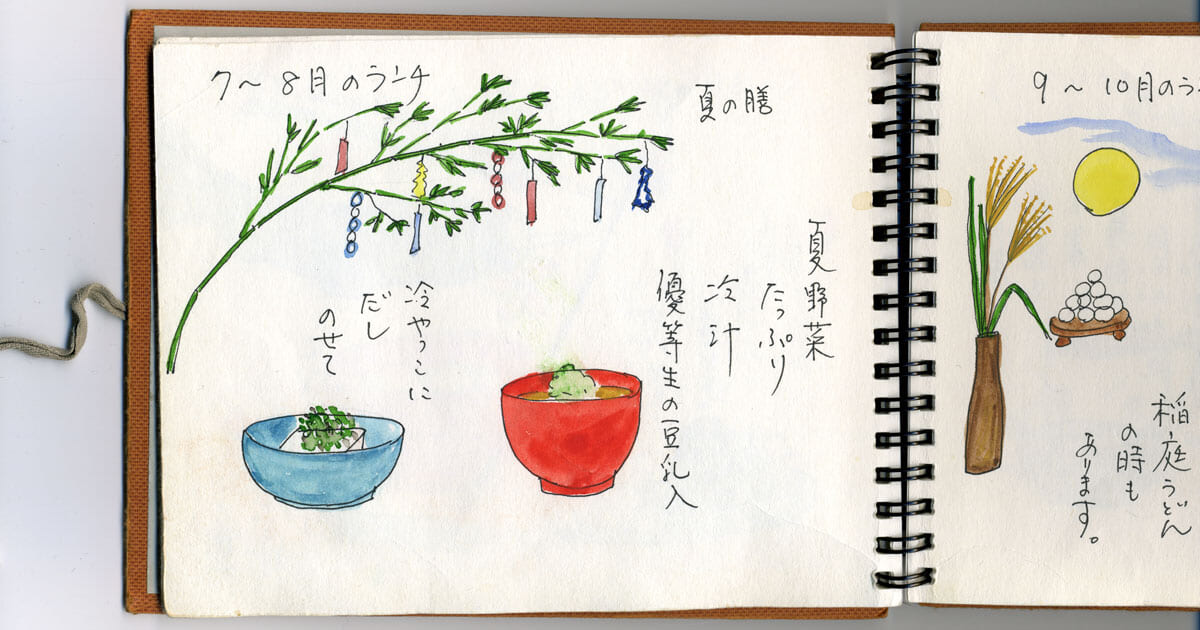 7～8月のランチ
夏の膳
夏野菜
たっぷり
冷汁
優等生の豆乳入
冷やっこに
だし
のせて
9～10月のラ
稲庭うどん
の時も
あります。